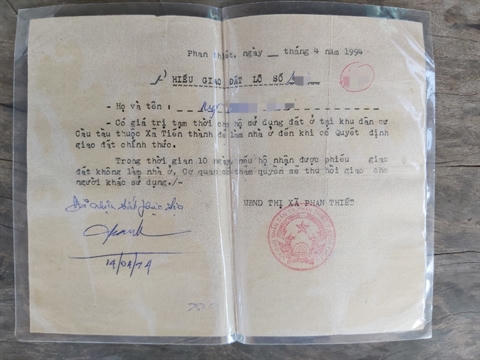 Phan Thiết, ngày __ tháng 4 năm 1994
PHIẾU GIAO ĐẤT LÔ SỐ
- Họ và tên :
- Có giá trị tạm thời cho hộ sử dụng đất ở tại khu dân cư
Cầu tàu thuộc Xã Tiến thành để làm nhà ở đến khi có Quyết định
giao đất chính thức.
Trong thời gian 10 ngày nếu hộ nhận được phiếu giao
đất không làm nhà ở, Cơ quan có thẩm quyền sẽ thu hồi giao cho
người khác sử dụng./-
UBND THỊ XÃ PHAN THIẾT